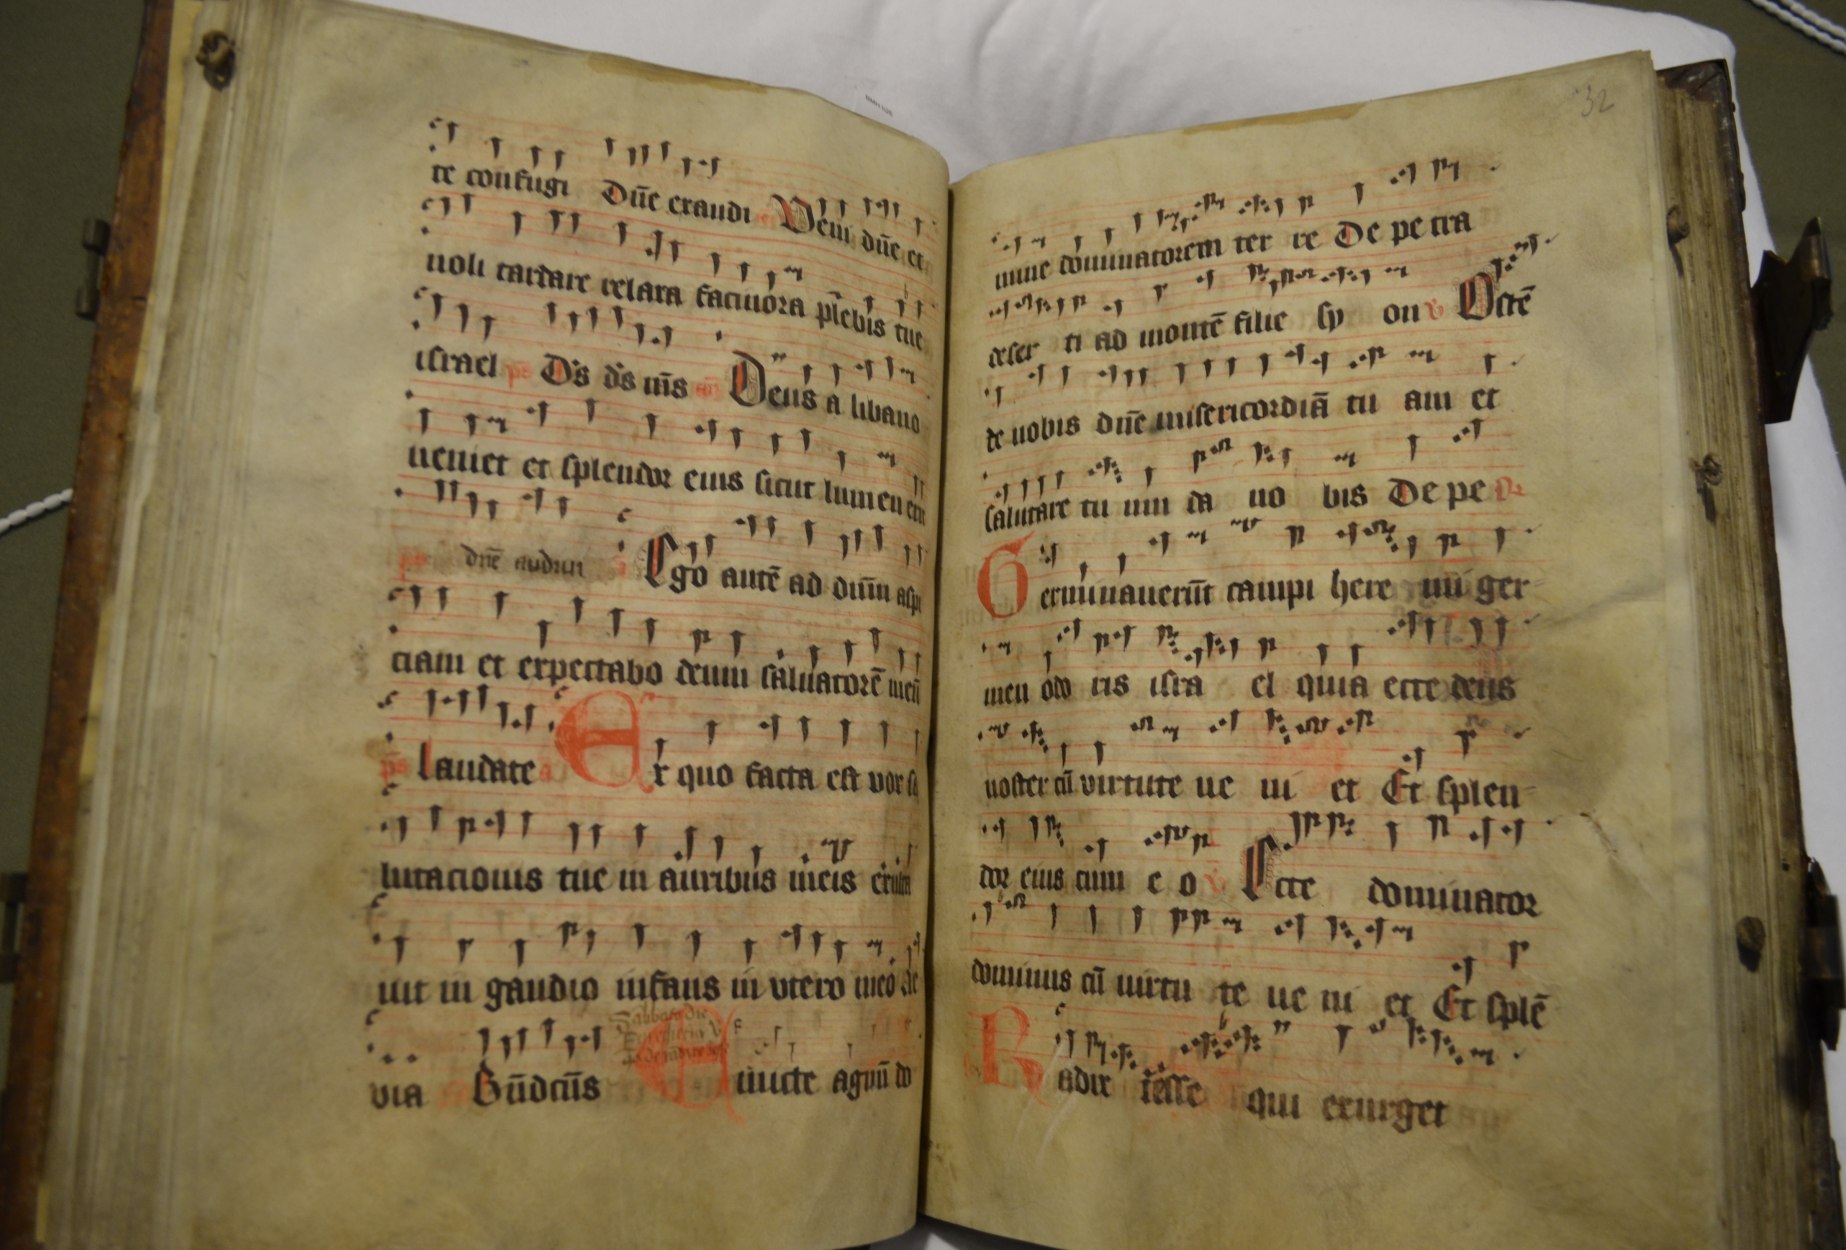 te confugi Dn̄e exaudi Veni dn̄e et
noli tardare relaxa facinora plebis tue
israel ps D's d's m̄s an̄ Deus a libano
ueniet et splendor eius sicut lumen erit
ps dn̄e audiui a Ego autē ad dn̄m aspi
ciam et expectabo deum saluatorē meū
ps laudate a Ex quo facta est vox sa
lutacionis tue in auribus meis exulta
uit in gaudio infans in utero meo alle
via Bn̄dctūs Emitte agnū do
32
mine dominatorem ter re De pe tra
deser ti ad montē filie sy on v Ostē
de nobis dn̄e misericordiā tu am et
salutare tu um da no bis De pe
Germinauerūt campi here mi ger
men odo ris isra el quia ecce deus
noster cū virtute ue ni et Et splen
dor eius cum e o v Ecce dominator
dominus cū uirtu te ue ni et Et splē
Radix iesse qui exurget